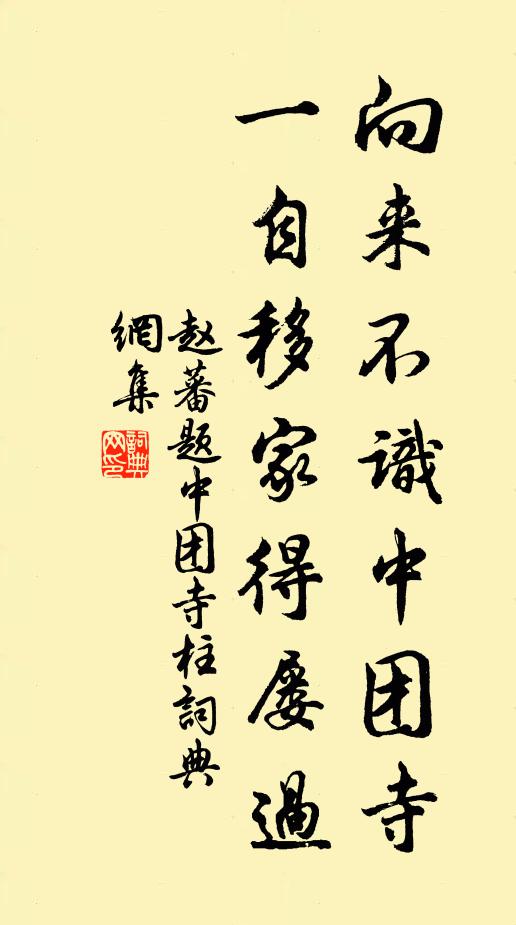 向来不識中团寺
一自移家得屡過
赵蕃题中团寺柱詞典
網集
詞典
网印